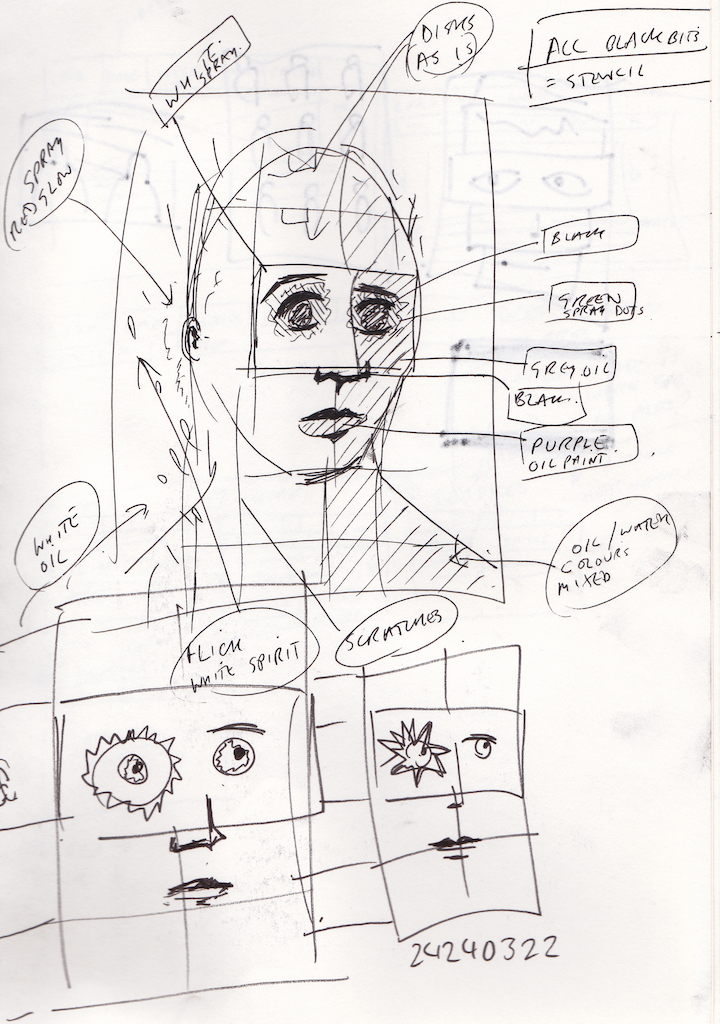 WHITE
SPRAY.
DISKS
AS IS
ALL BLACK BITS
= STENCIL
SPRAY
RED GLOW
BLACK
GREEN
SPRAY DOTS
GREY OIL
BLACK.
PURPLE
OIL PAINT.
WHITE
OIL
OIL/WATER
COLOURS
MIXED
FLICK
WHITE SPIRIT
SCRATCHES
24240322